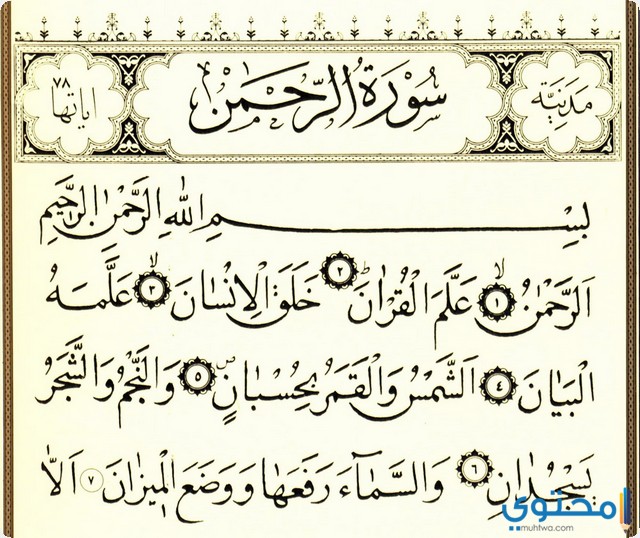 مَدَنِيَّة
سُورَةُ الرَّحْمٰنِ
اٰيَاتُهَا ٧٨
بِسْمِ اللّٰهِ الرَّحْمٰنِ الرَّحِيمِ
اَلرَّحْمٰنُۙ ١ عَلَّمَ الْقُرْاٰنَۜ ٢ خَلَقَ الْاِنْسَانَۙ ٣ عَلَّمَهُ
الْبَيَانَ ٤ اَلشَّمْسُ وَالْقَمَرُ بِحُسْبَانٍۖ ٥ وَالنَّجْمُ وَالشَّجَرُ
يَسْجُدَانِ ٦ وَالسَّمَٓاءَ رَفَعَهَا وَوَضَعَ الْمِيزَانَ ٧ اَلَّا
محتوى
muhtwa.com